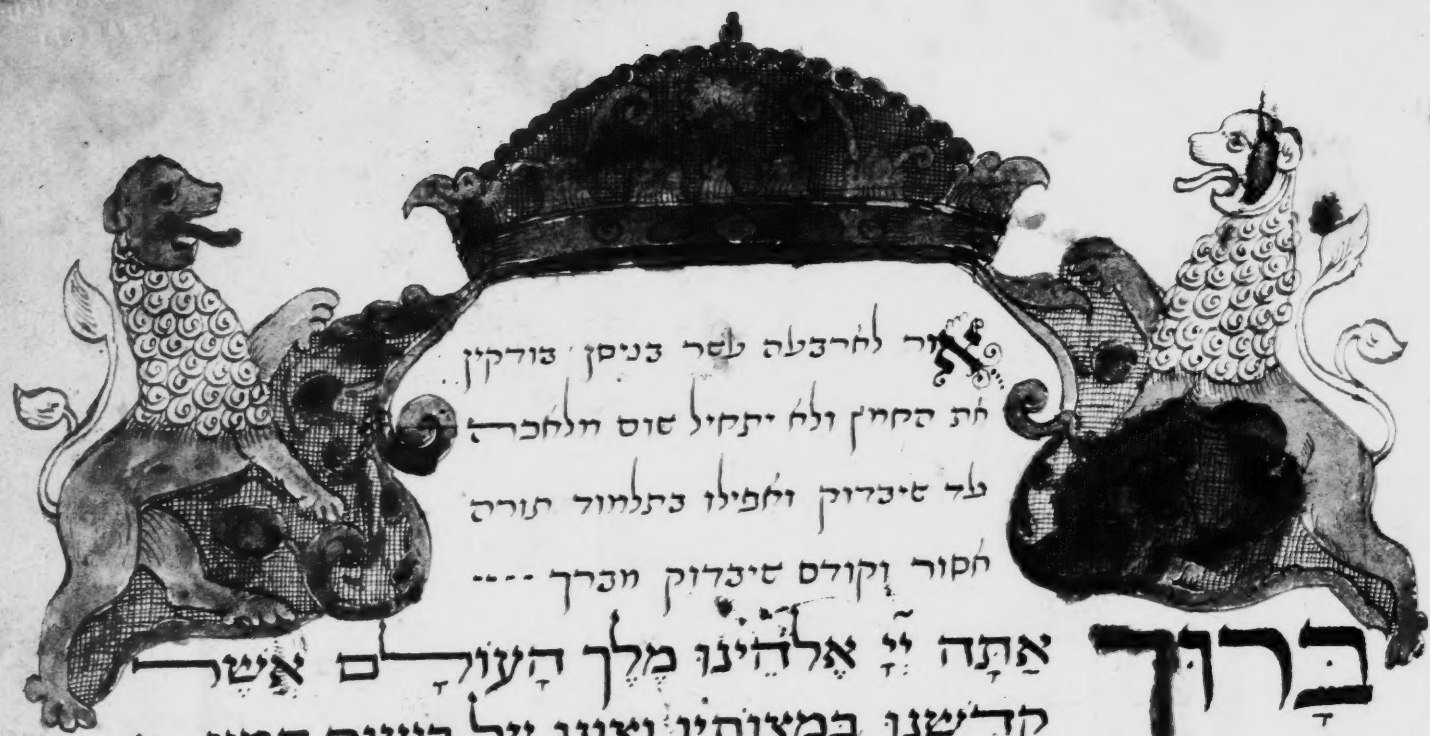 אור לארבעה עשר בניסן בודקין
את החמץ ולא יתחיל שום מלאכה
עד שיבדוק ואפילו בתלמוד תורה
אסור וקודם שיבדוק מברך
בָּרוּךְ אַתָּה יְיָ אֱלֹהֵינוּ מֶלֶךְ הָעוֹלָם אֲשֶׁר
קדשנו במצותיו וצונו על